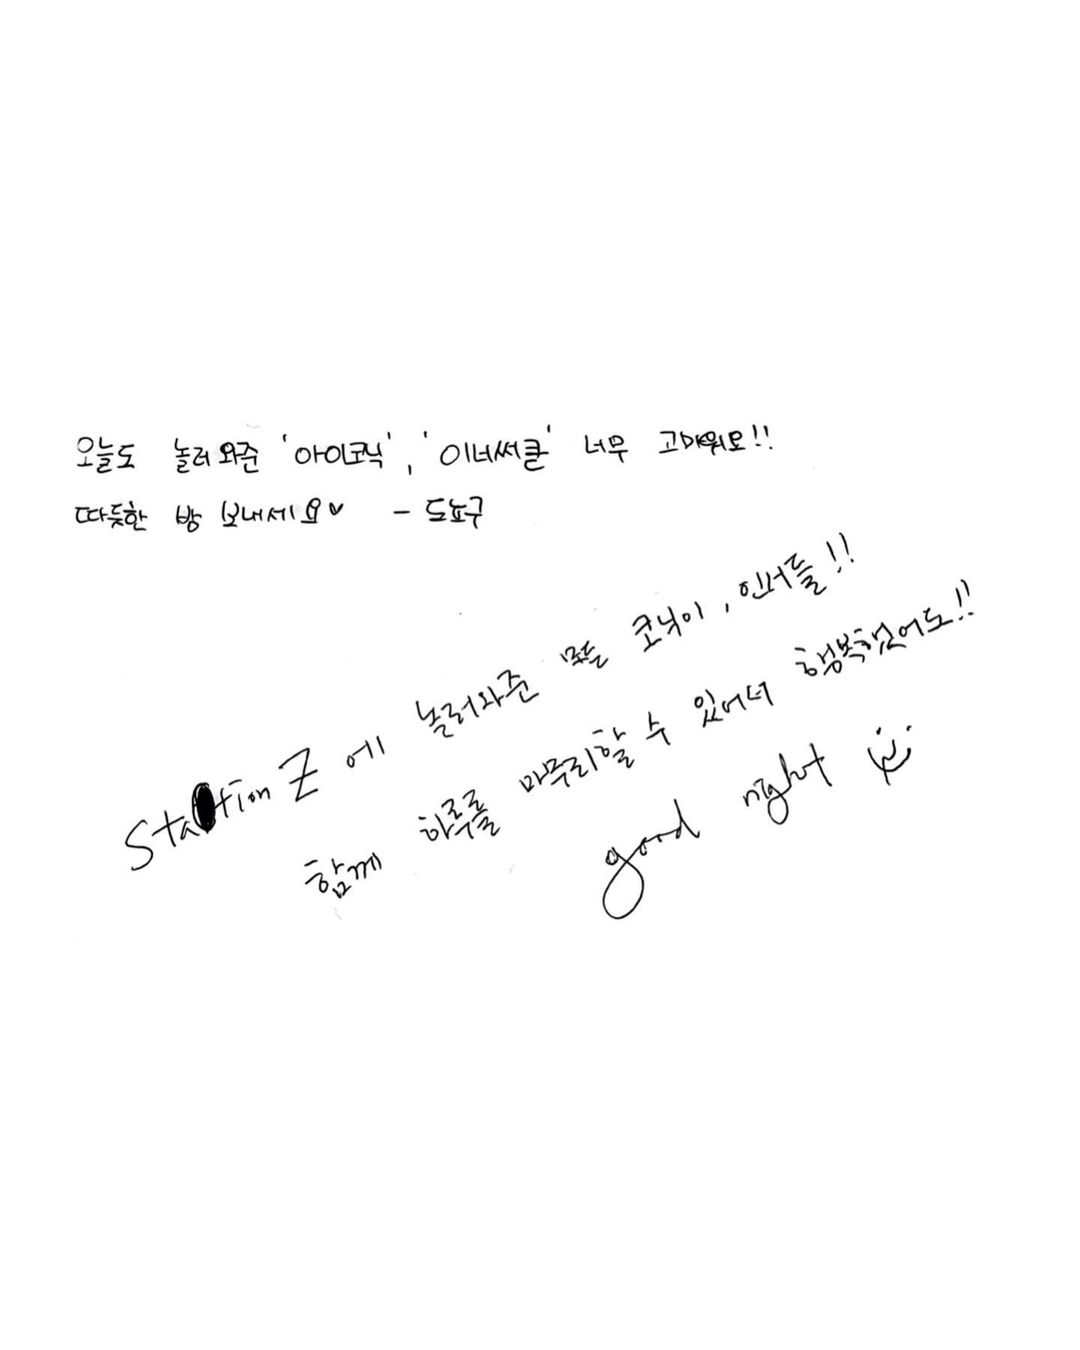 오늘도 놀러와준 '아이코닉', '이너써클' 너무 고마워요!!
따듯한 밤 보내세요♥ - 도뇨구
Station Z 에 놀러와준 모든 코닉이, 인서들!!
함께 하루를 마무리할 수 있어서 행복했어도!!
good night